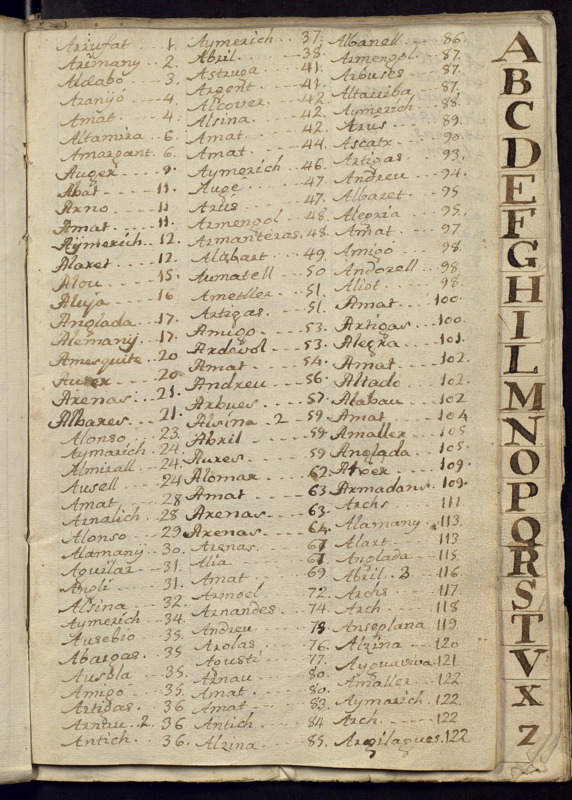 Arrufat 1.
Arimany 2.
Aldabo 3.
Aranyó 4.
Amat 4.
Altamira 6.
Amargant. 6.
Auger 9.
Abat 11.
Arno 11
Amat 11.
Aymerich 12.
Alaret 12.
Alou 15.
Aluja 16
Anglada 17.
Alemany 17.
Amesquite 20
Auxer 20
Arenas 21.
Albares 21.
Alonso 23.
Aymarich 24.
Almirall 24.
Ausell 24
Amat 28
Arnalich 28
Alonso 29
Alamany 30.
Aguilar 31.
Anglí 31.
Alsina 32.
Aymerich 34.
Ausebio 35.
Abargas 35
Ausbla 35.
Amigó 35.
Artigas 36
Arnau 2. 36
Antich 36.
Aymerich 37.
Abril 38.
Astruga 41.
Argent 41.
Alcover 42.
Alsina 42.
Amat 42.
Amat 44.
Aymerich 46.
Auge 47
Arús 47.
Armengol 48
Armanteras 48
Alabart 49.
Aumatell 50
Ametller 51.
Artigas 51.
Amigo 53.
Ardevol 53.
Amat 54.
Andreu 56.
Arbues 57
Alsina 2 59
Abril 59
Aures 59
Alomar 62
Amat 63
Arenas 63.
Arenas 64.
Arenas 67
Alia 67
Amat 69
Armoel 72
Arnandes 74.
Andreu 75
Arolas 76.
Agustí 77.
Arnau 80.
Amat 80.
Amat 83.
Antich 84
Alzina 85.
Albanell 86.
Armengol 87.
Arbuses 87.
Altarriba 87.
Aymerich 88.
Arus 89.
Ascatx 90.
Artigas 93.
Andreu 94.
Albaret 95
Alegria 95.
Amat 97
Amigó 98.
Andorell 98.
Aliot 98.
Amat 100.
Artigas 100.
Alegra 101.
Amat 102.
Altado 102.
Atabau 102
Amat 104
Amaller 105
Anglada 105.
Alver 109.
Armadans 109.
Archs 111
Alamany 113.
Alart 113.
Anglada 115.
Abril 3 116.
Archs 117.
Arch 118
Anseplana 119.
Alzina 120
Ayguaviva 121.
Amaller 122
Aymarich 122.
Arch 122
Argilagues 122
A
B
C
D
E
F
G
H
I
L
M
N
O
P
Q
R
S
T
V
X
Z